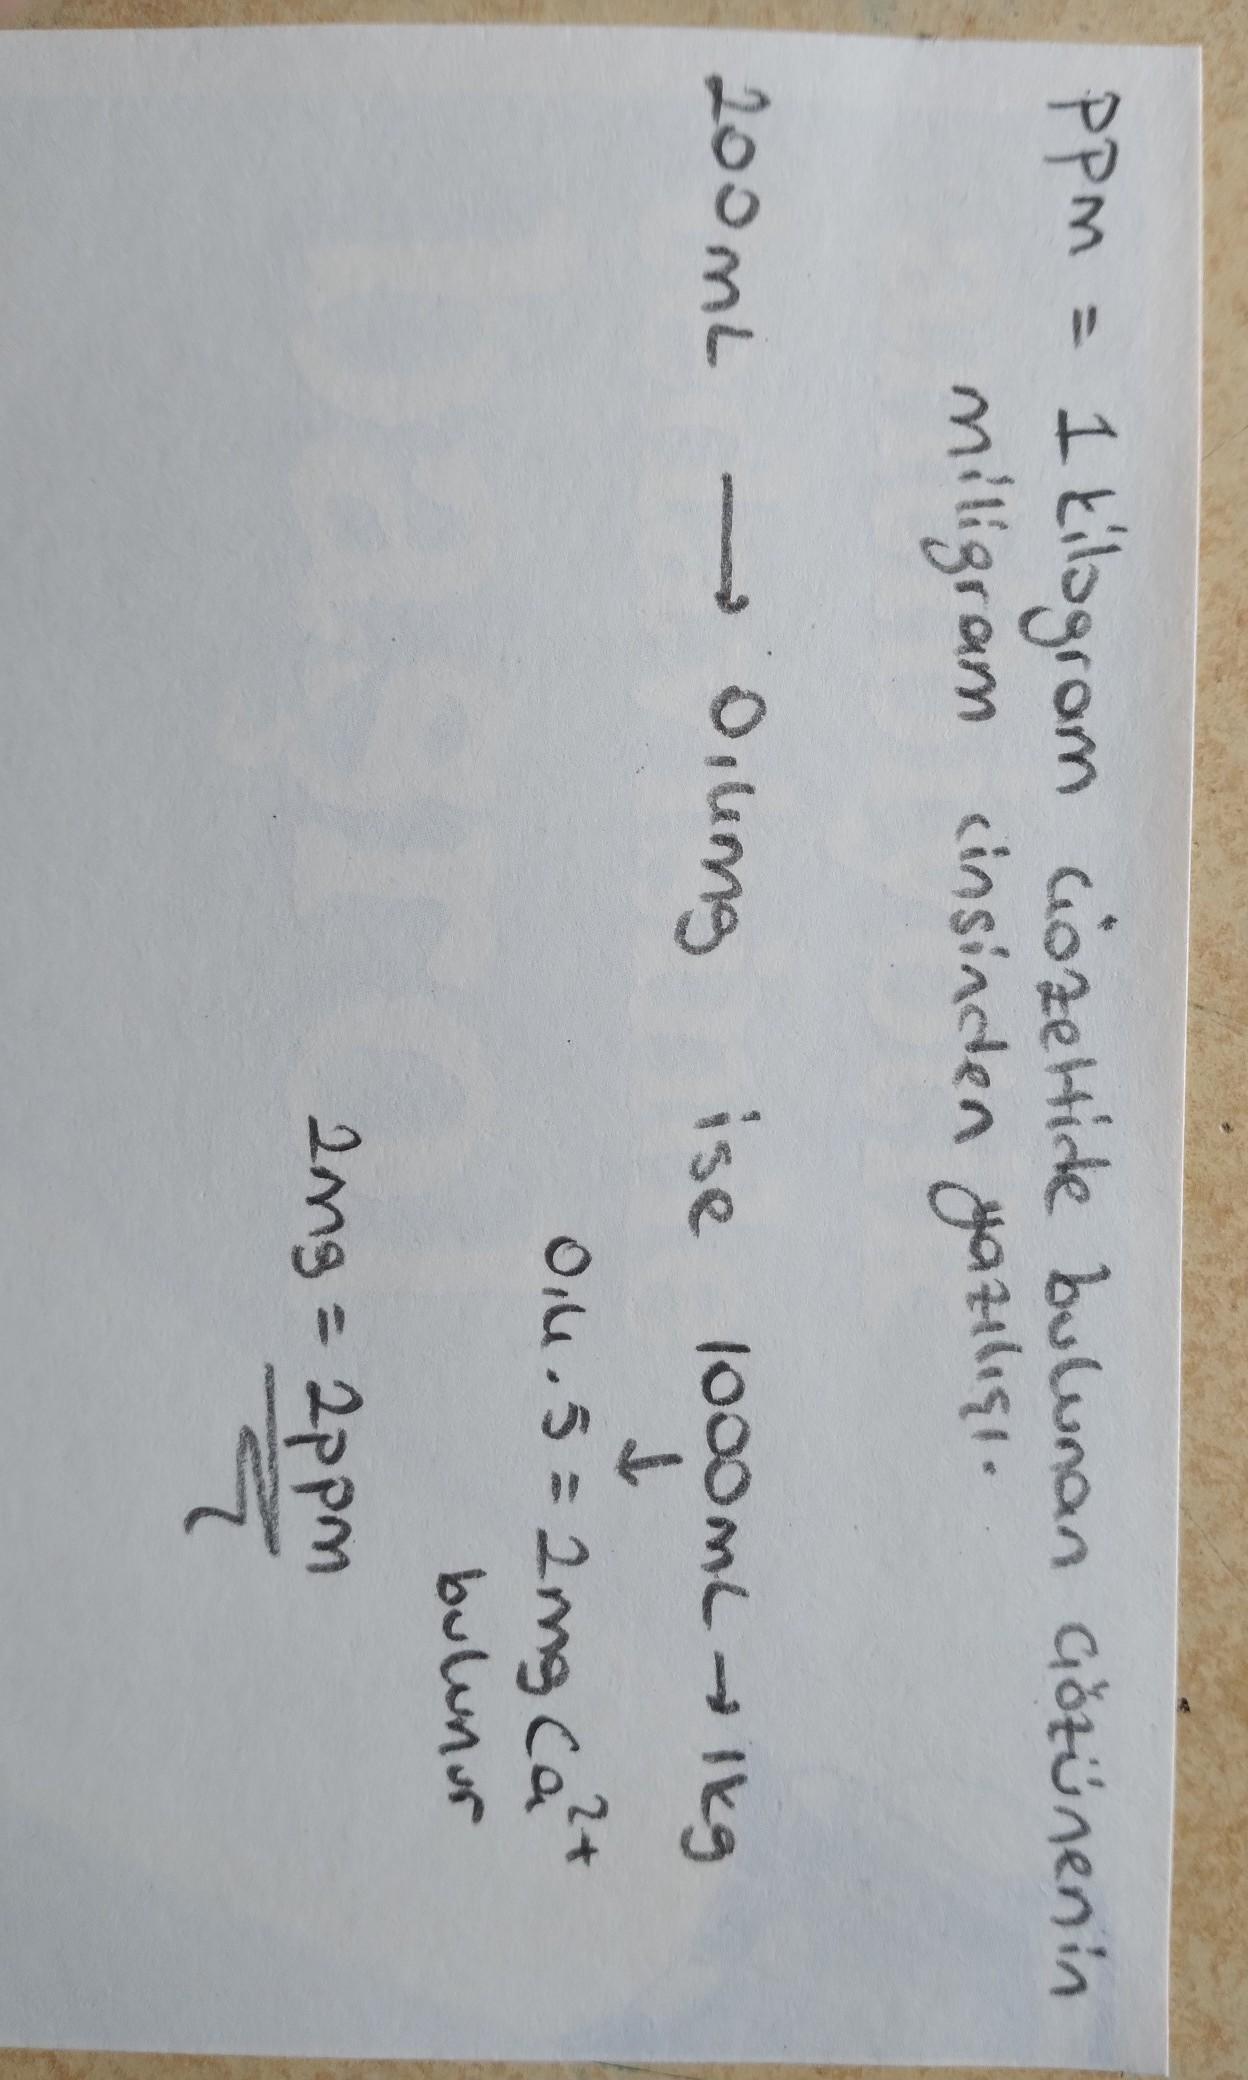 ppm = 1 kilogram çözeltide bulunan çözünenin
miligram cinsinden yazılışı.
200mL → 0,4mg ise 1000mL → 1kg
↓
0,4 . 5 = 2mg Ca²⁺
bulunur
2mg = 2ppm